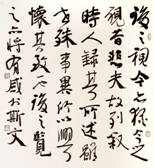 後之視今亦由今之
視昔悲夫故列敘
時人錄其所述雖
世殊事異所以興
懷其致一也後之覽
者亦將有感於斯文